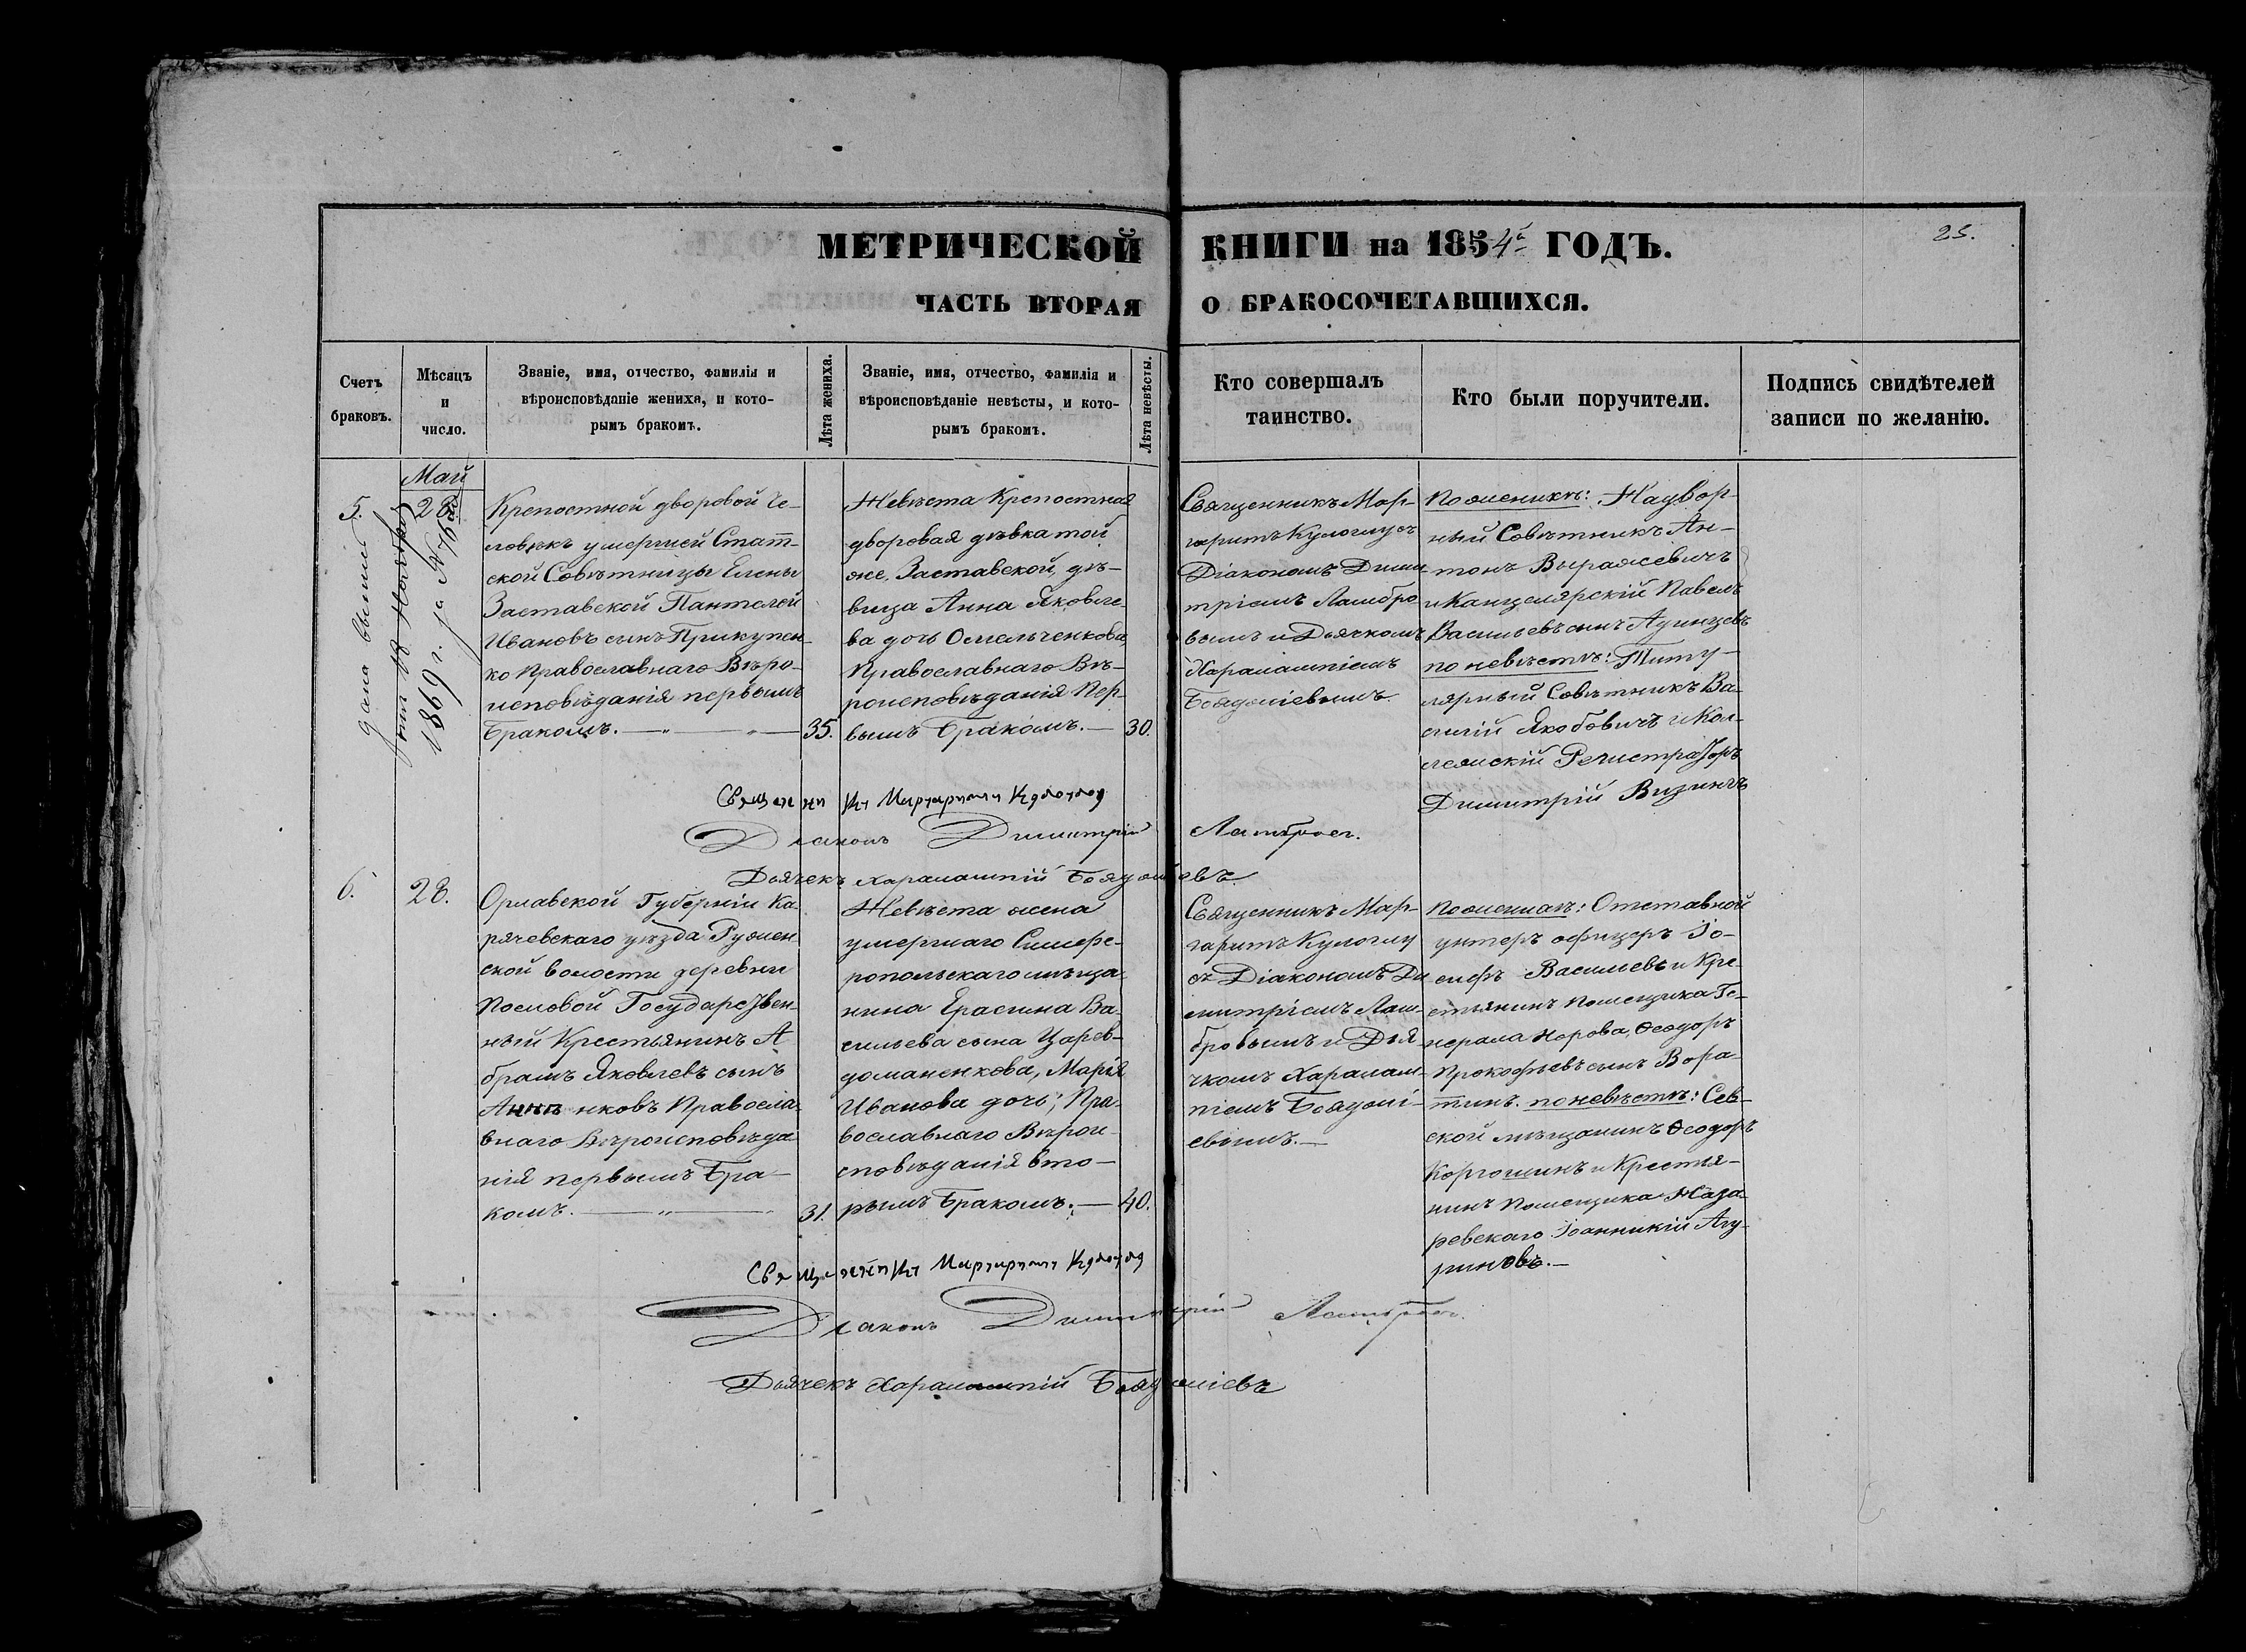 МЕТРИЧЕСКОЙ КНИГИ на 1854 ГОДЪ.
25.
ЧАСТЬ ВТОРАЯ О БРАКОСОЧЕТАВШИХСЯ.
Счетъ браковъ.
Мѣсяцъ и число.
Званіе, имя, отчество, фамилія и
вѣроисповѣданіе жениха, и кото-
рымъ бракомъ.
Лѣта жениха.
Званіе, имя, отчество, фамилія и
вѣроисповѣданіе невѣсты, и кото-
рымъ бракомъ.
Лѣта невѣсты.
Кто совершалъ
таинство.
Кто были поручители.
Подпись свидѣтелей
записи по желанію.
Май
5.
28
1869 г. за № 76
Крепостной дворовой че-
ловѣкъ умершей Стат-
ской Совѣтницы Елены
Заставской Пантелей
Ивановъ сынъ Прикупен-
ко Православнаго Вѣро-
исповѣданія первымъ
Бракомъ.
35.
Невѣста Крепостная
дворовая дѣвка той
же, Заставской, дѣ-
вица Анна Яковле-
ва дочь Омельченкова,
Православнаго Вѣ-
роисповѣданія Пер-
вымъ Бракомъ.
30.
Священникъ Мар-
гаритъ Кулоглу съ
Діакономъ Дими-
тріемъ Ламбро
вымъ и Дьячкомъ
Харалампіемъ
Бояджіевымъ.
По женихѣ: Надвор-
ный Совѣтникъ Ан-
тонъ Выражевичъ
и Канцелярскій Павелъ
Васильевъ сынъ
по невѣстѣ: Титу-
лярный Совѣтникъ Ва-
силій Якобовичъ и Кол-
лежскій Регистраторъ
Димитрій Визинъ
Священникъ Маргаритъ Кулоглу
Діаконъ Димитрій Ламбровъ.
Дьячекъ Харалампій Бояджіевъ.
6.
28.
Орлавской Губерніи Ка
рячевскаго уѣзда Ружен
ской волости деревни
Пословой Государствен-
ный Крестьянинъ А
брамъ Яковлевъ сынъ
нковъ Правосла-
внаго Вѣроисповѣда
нія первымъ Бра-
комъ.
31.
Невѣста жена
умершаго Симфе-
ропольскаго мѣща-
нина Ерасима Ва-
сильева сына Царев-
доманенкова, Марія
Иванова дочь, Пра-
вославнаго Вѣрои-
сповѣданія вто-
рымъ Бракомъ.
40.
Священникъ Мар-
гаритъ Кулоглу
съ Діакономъ Ди
митріемъ Лам-
бровымъ и Дья-
чкомъ Харалам-
піемъ Бояджі-
евымъ.
По женихѣ: Отставной
унтеръ офицеръ Іо-
сифъ Васильевъ и Кре-
стьянинъ Помещика Ге-
нерала Норова, Ѳеодоръ
Прокофьевъ сынъ Вора-
тинъ. по невѣстѣ: Сев-
ской мѣщанинъ Ѳеодоръ
Коргошинъ и Крестья-
нинъ Помещика Наза-
ревскаго Іоанникій
Священникъ Маргаритъ Кулоглу
Діаконъ Димитрій Ламбровъ.
Дьячекъ Харалампій Бояджіевъ